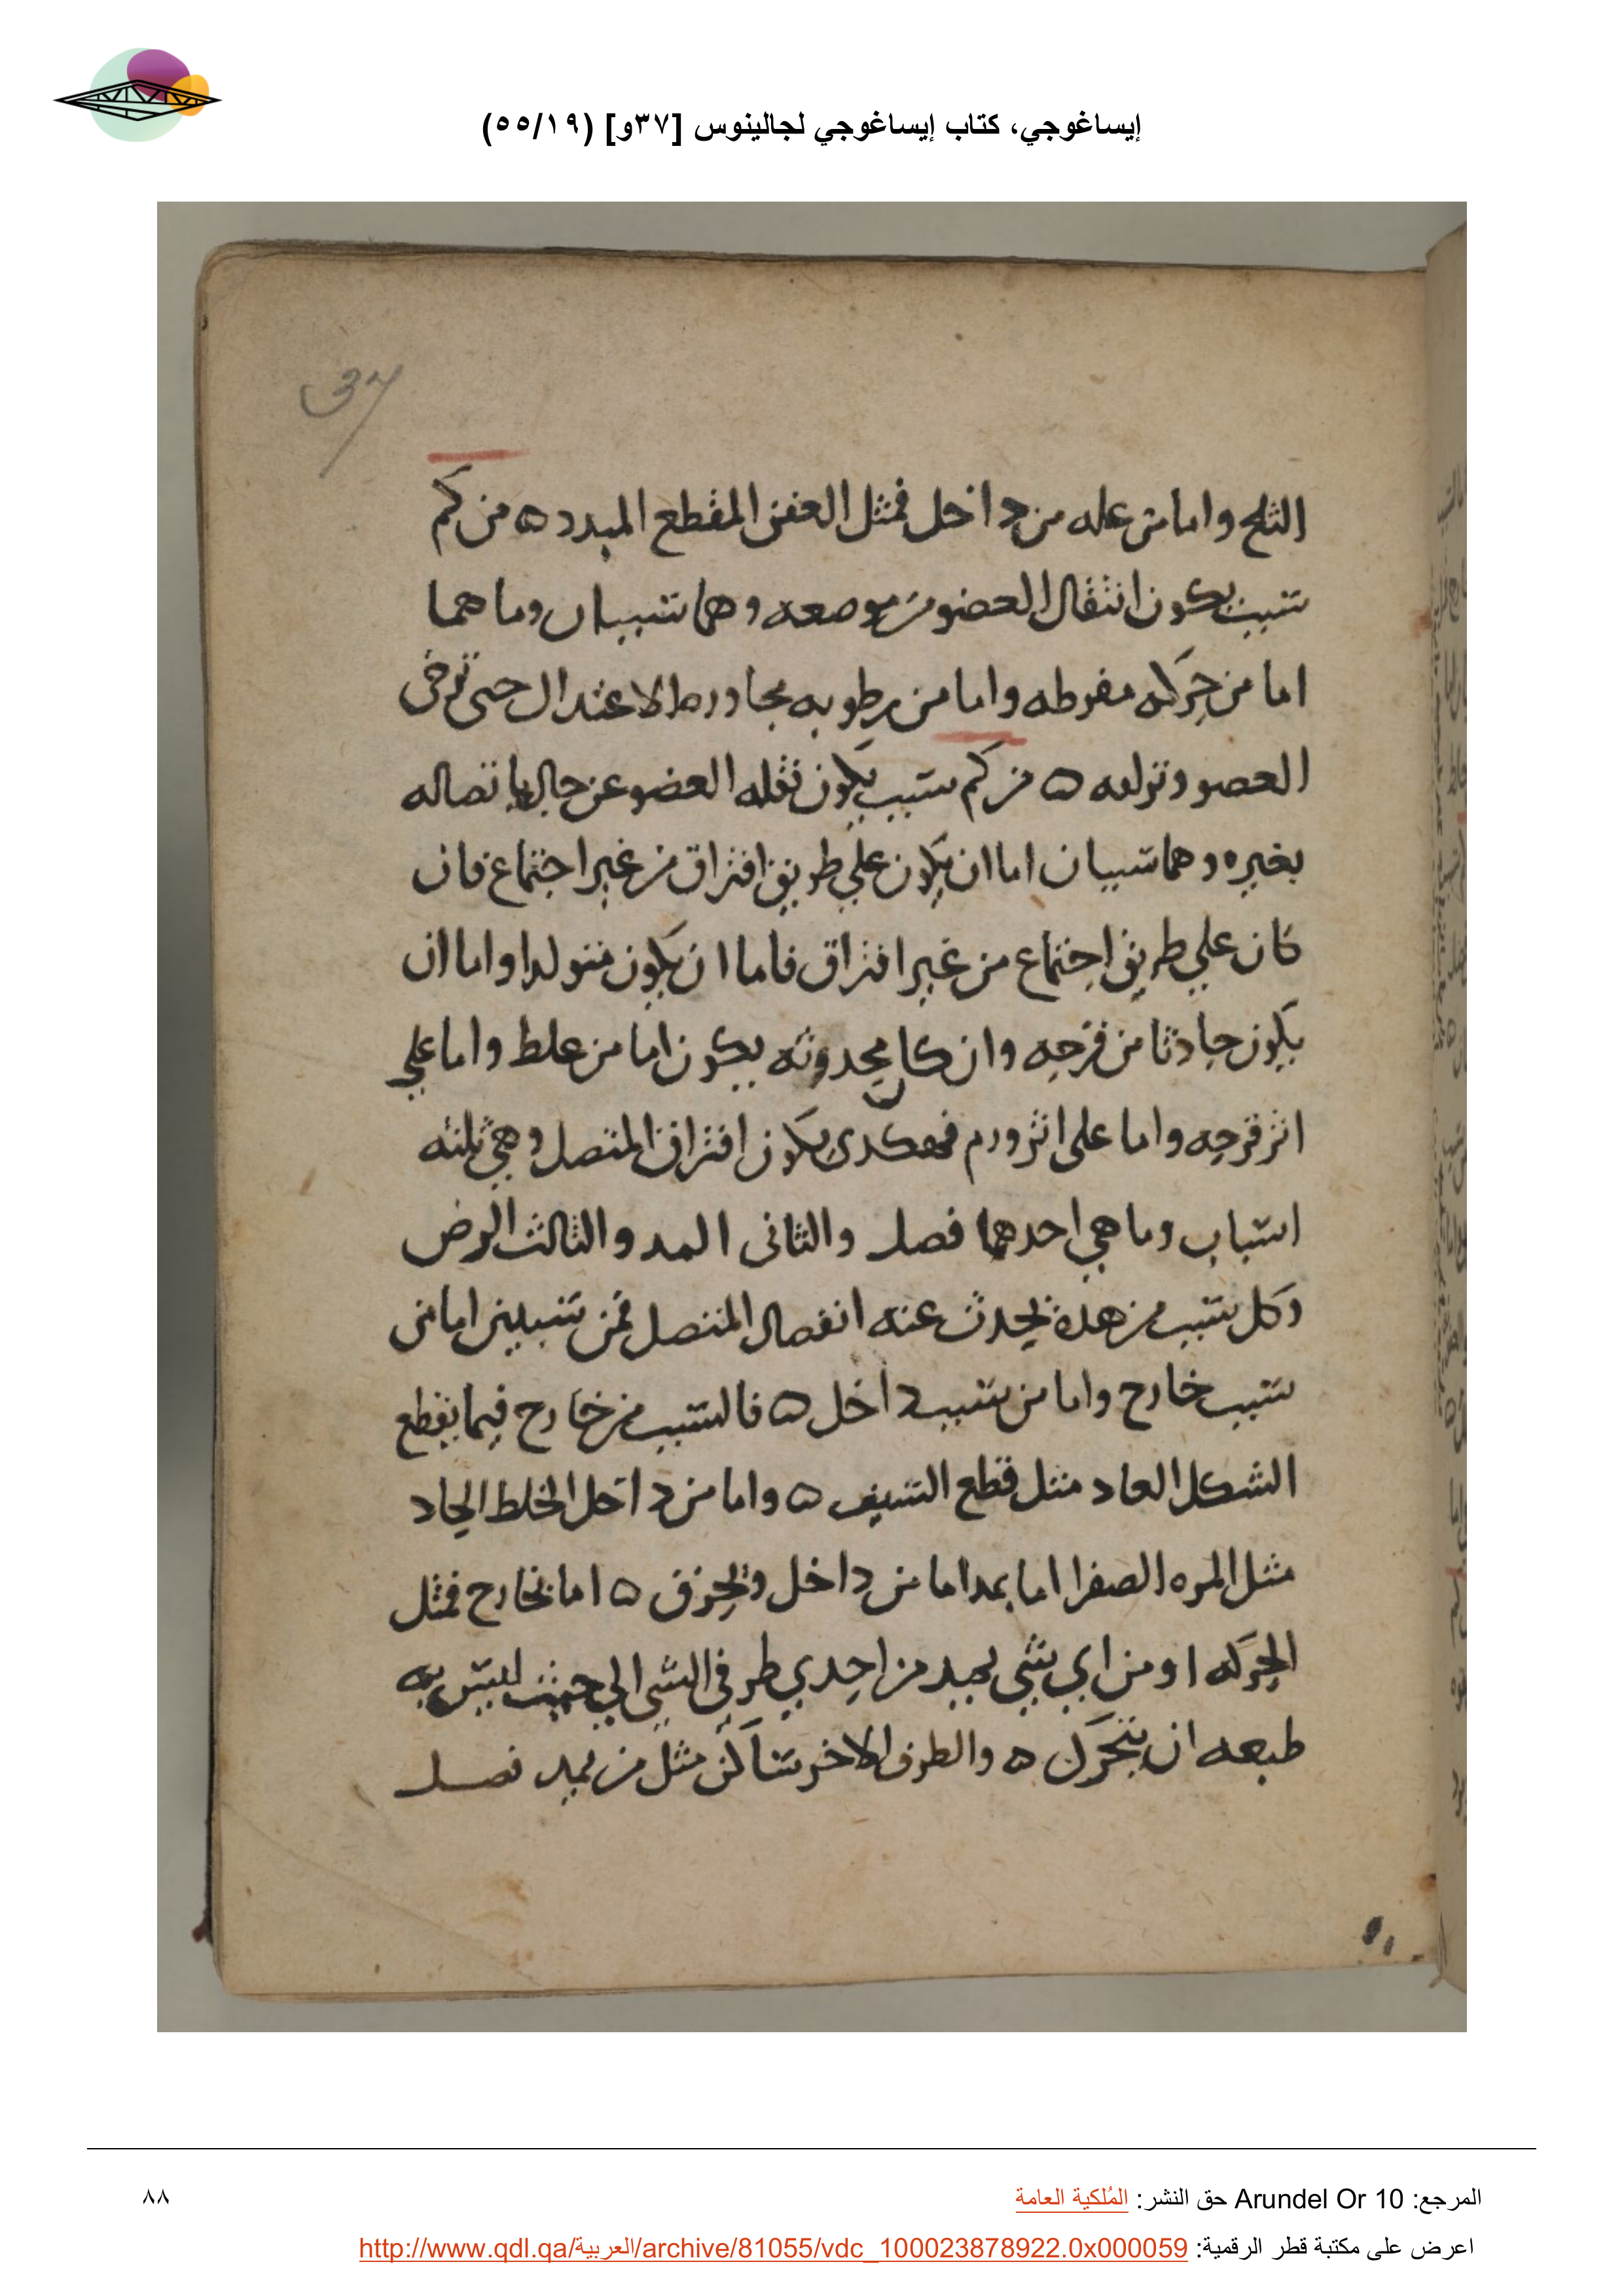 إيساغوجي، كتاب إيساغوجي لجالينوس [٣٧و] (٥٥/١٩)
37
الثلج واما من عله من داخل فمثل العفن المقطع المبدد ه من كم
سبب يكون انتقال العضو من موضعه وهما سببان وما هما
اما من حركه مفرطه واما من رطوبه مجاوره الاعتدال حتى ترخى
العضو وتزلقه ه من كم سبب يكون نقله العضو عن حال اتصاله
بغيره وهما سببان اما ان يكون علي طريق افتراق من غير اجتماع فان
كان علي طريق اجتماع من غير افتراق فاما ان يكون متولدا واما ان
يكون حادثا من قرحه وان كان حدوثه يكون اما من غلط واما علي
اثر قرحه واما على اثر ورم فهكدى يكون افتراق المتصل وهي ثلثه
اسباب وما هي احدهما فصل والثانى المد والثالث الرض
وكل سبب من هذه يحدث عنه انفصال المتصل فمن سببين اما من
سبب خارج واما من سبب داخل ه فالسبب من خارج فيما يقطع
الشكل الحاد مثل قطع السيف ه واما من داخل الخلط الحاد
مثل المره الصفرا اما يمد اما من داخل ويخرق ه اما بخارج فمثل
الحركه او من اي شي يميد من احدي طرفى الشي الي حيث ليس به
طبعه ان يتحرك ه والطرف الاخر ساكن مثل من يميد فصل
المرجع: Arundel Or 10 حق النشر: المُلكية العامة
٨٨
اعرض على مكتبة قطر الرقمية: http://www.qdl.qa/العربية/archive/81055/vdc_100023878922.0x000059